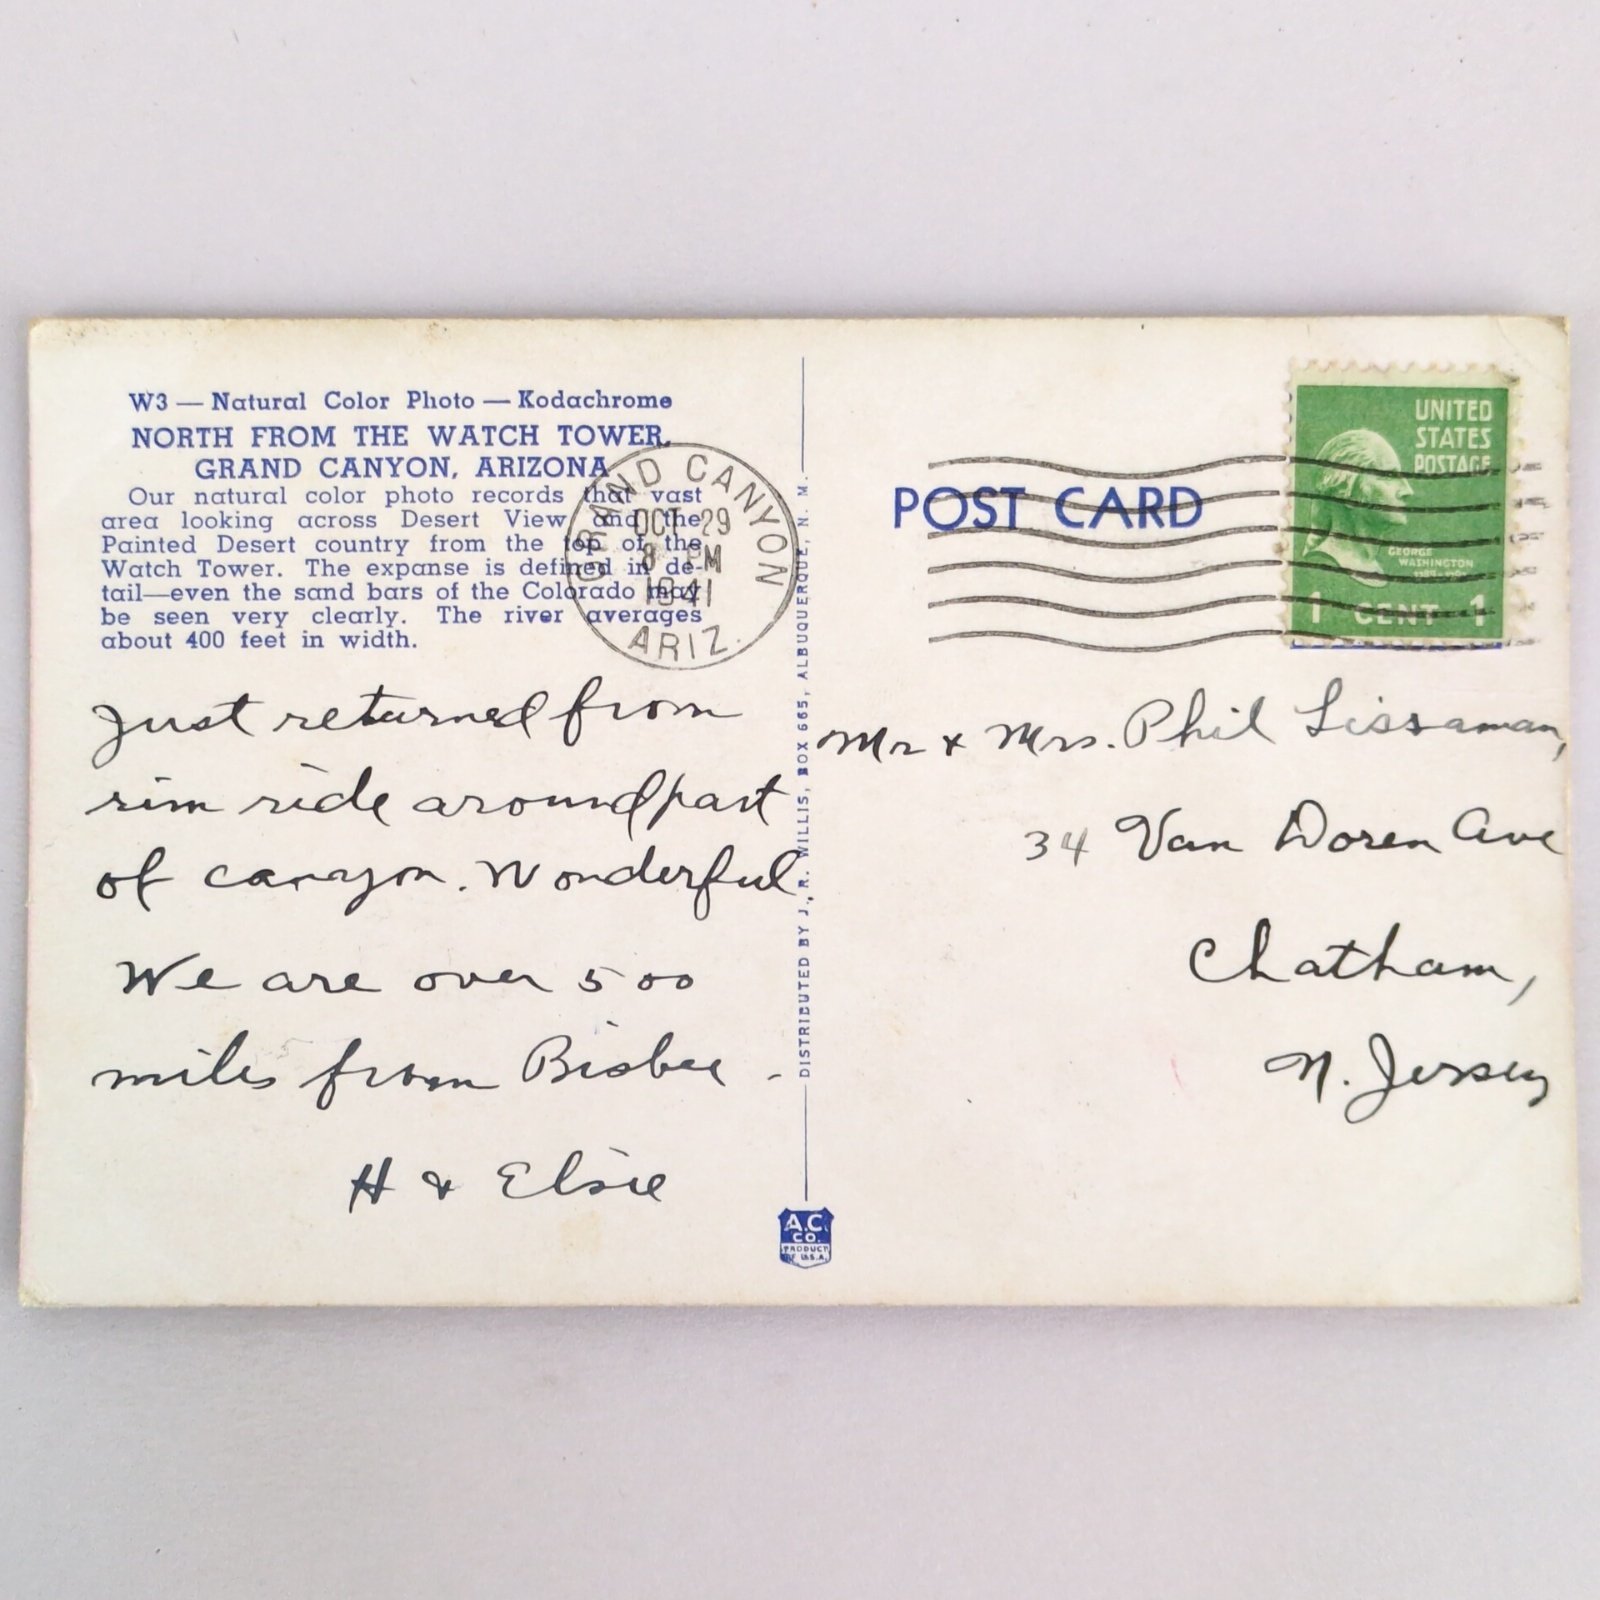 W3 — Natural Color Photo — Kodachrome
NORTH FROM THE WATCH TOWER,
GRAND CANYON, ARIZONA
Our natural color photo records that vast
area looking across Desert View and the
Painted Desert country from the top of the
Watch Tower. The expanse is defined in de-
tail—even the sand bars of the Colorado may
be seen very clearly. The river averages
about 400 feet in width.
GRAND CANYON
OCT 29
8 PM
1941
ARIZ.
Just returned from
rim ride around part
of canyon. Wonderful
We are over 500
miles from Bisbee -
H & Elsie
DISTRIBUTED BY J. R. WILLIS, BOX 665, ALBUQUERQUE, N. M.
A.C.
CO.
PRODUCT
OF U.S.A.
POST CARD
UNITED
STATES
POSTAGE
GEORGE
WASHINGTON
1789-1797
1 CENT 1
Mr & Mrs. Phil Lissaman,
34 Van Doren Ave
Chatham,
N. Jersey